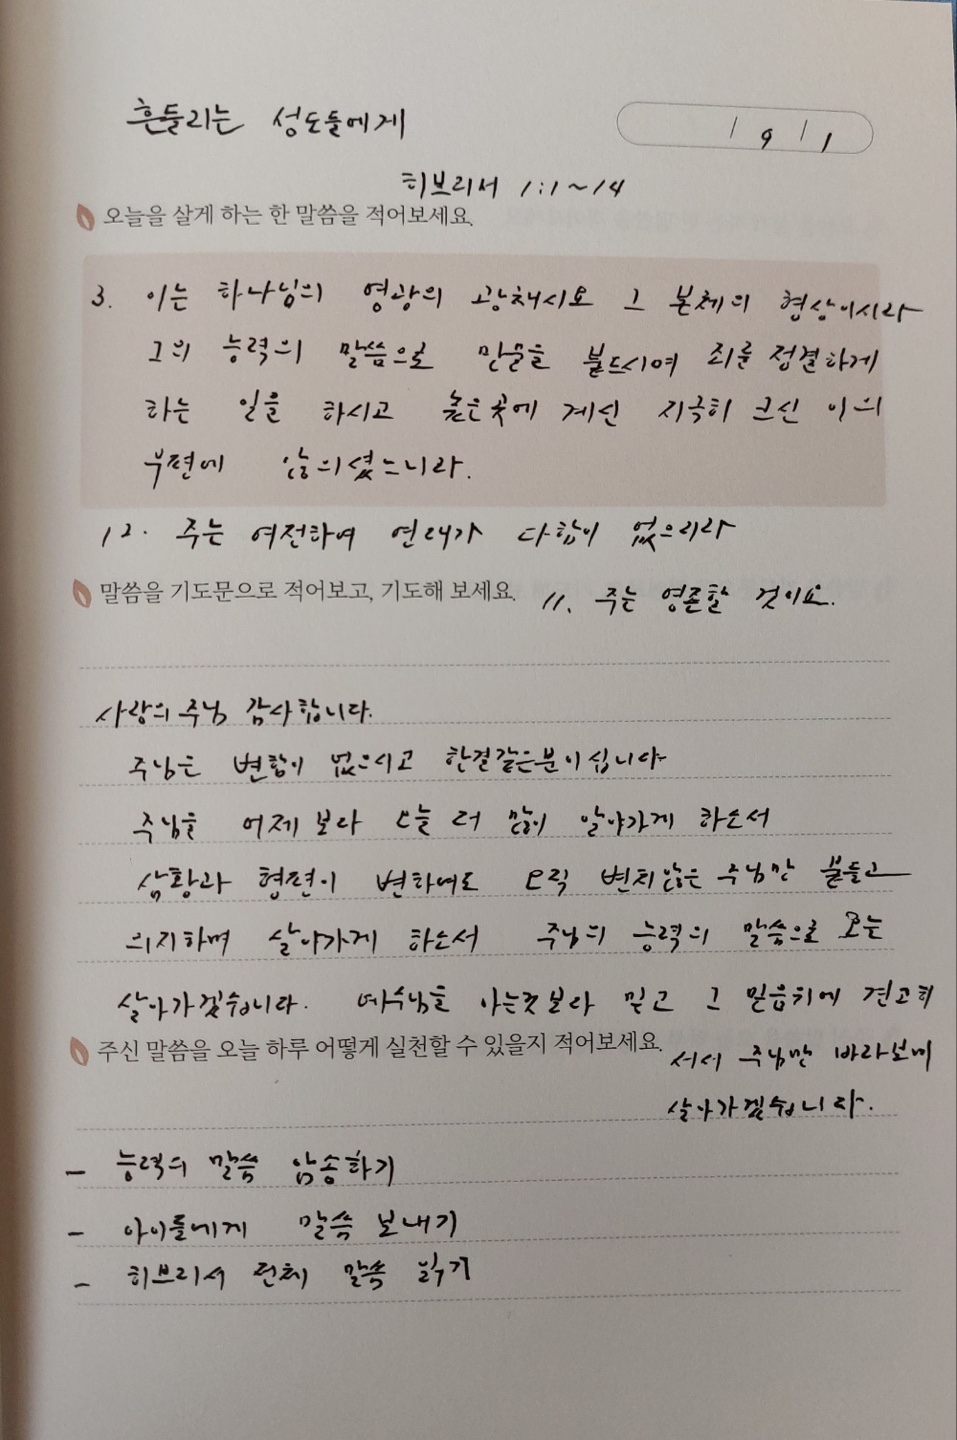 흔들리는 성도들에게
/ 9 / 1
히브리서 1:1~14
오늘을 살게 하는 한 말씀을 적어보세요.
3. 이는 하나님의 영광의 광채시요 그 본체의 형상이시라
그의 능력의 말씀으로 만물을 붙드시며 죄를 정결하게
하는 일을 하시고 높은 곳에 계신 지극히 크신 이의
우편에 앉으셨느니라.
12. 주는 여전하여 연대가 다함이 없으리라
말씀을 기도문으로 적어보고, 기도해 보세요.
11. 주는 영존할 것이요.
사랑의 주님 감사합니다.
주님은 변함이 없으시고 한결같은분이십니다
주님을 어제 보다 오늘 더 많이 알아가게 하소서
상황과 형편이 변하여도 오직 변치않은 주님만 붙들고
의지하며 살아가게 하소서 주님의 능력의 말씀으로 오늘
살아가겠습니다. 예수님을 아는것보다 믿고 그 믿음위에 견고히
주신 말씀을 오늘 하루 어떻게 실천할 수 있을지 적어보세요.
서서 주님만 바라보며
살아가겠습니다.
– 능력의 말씀 암송하기
– 아이들에게 말씀 보내기
– 히브리서 전체 말씀 읽기